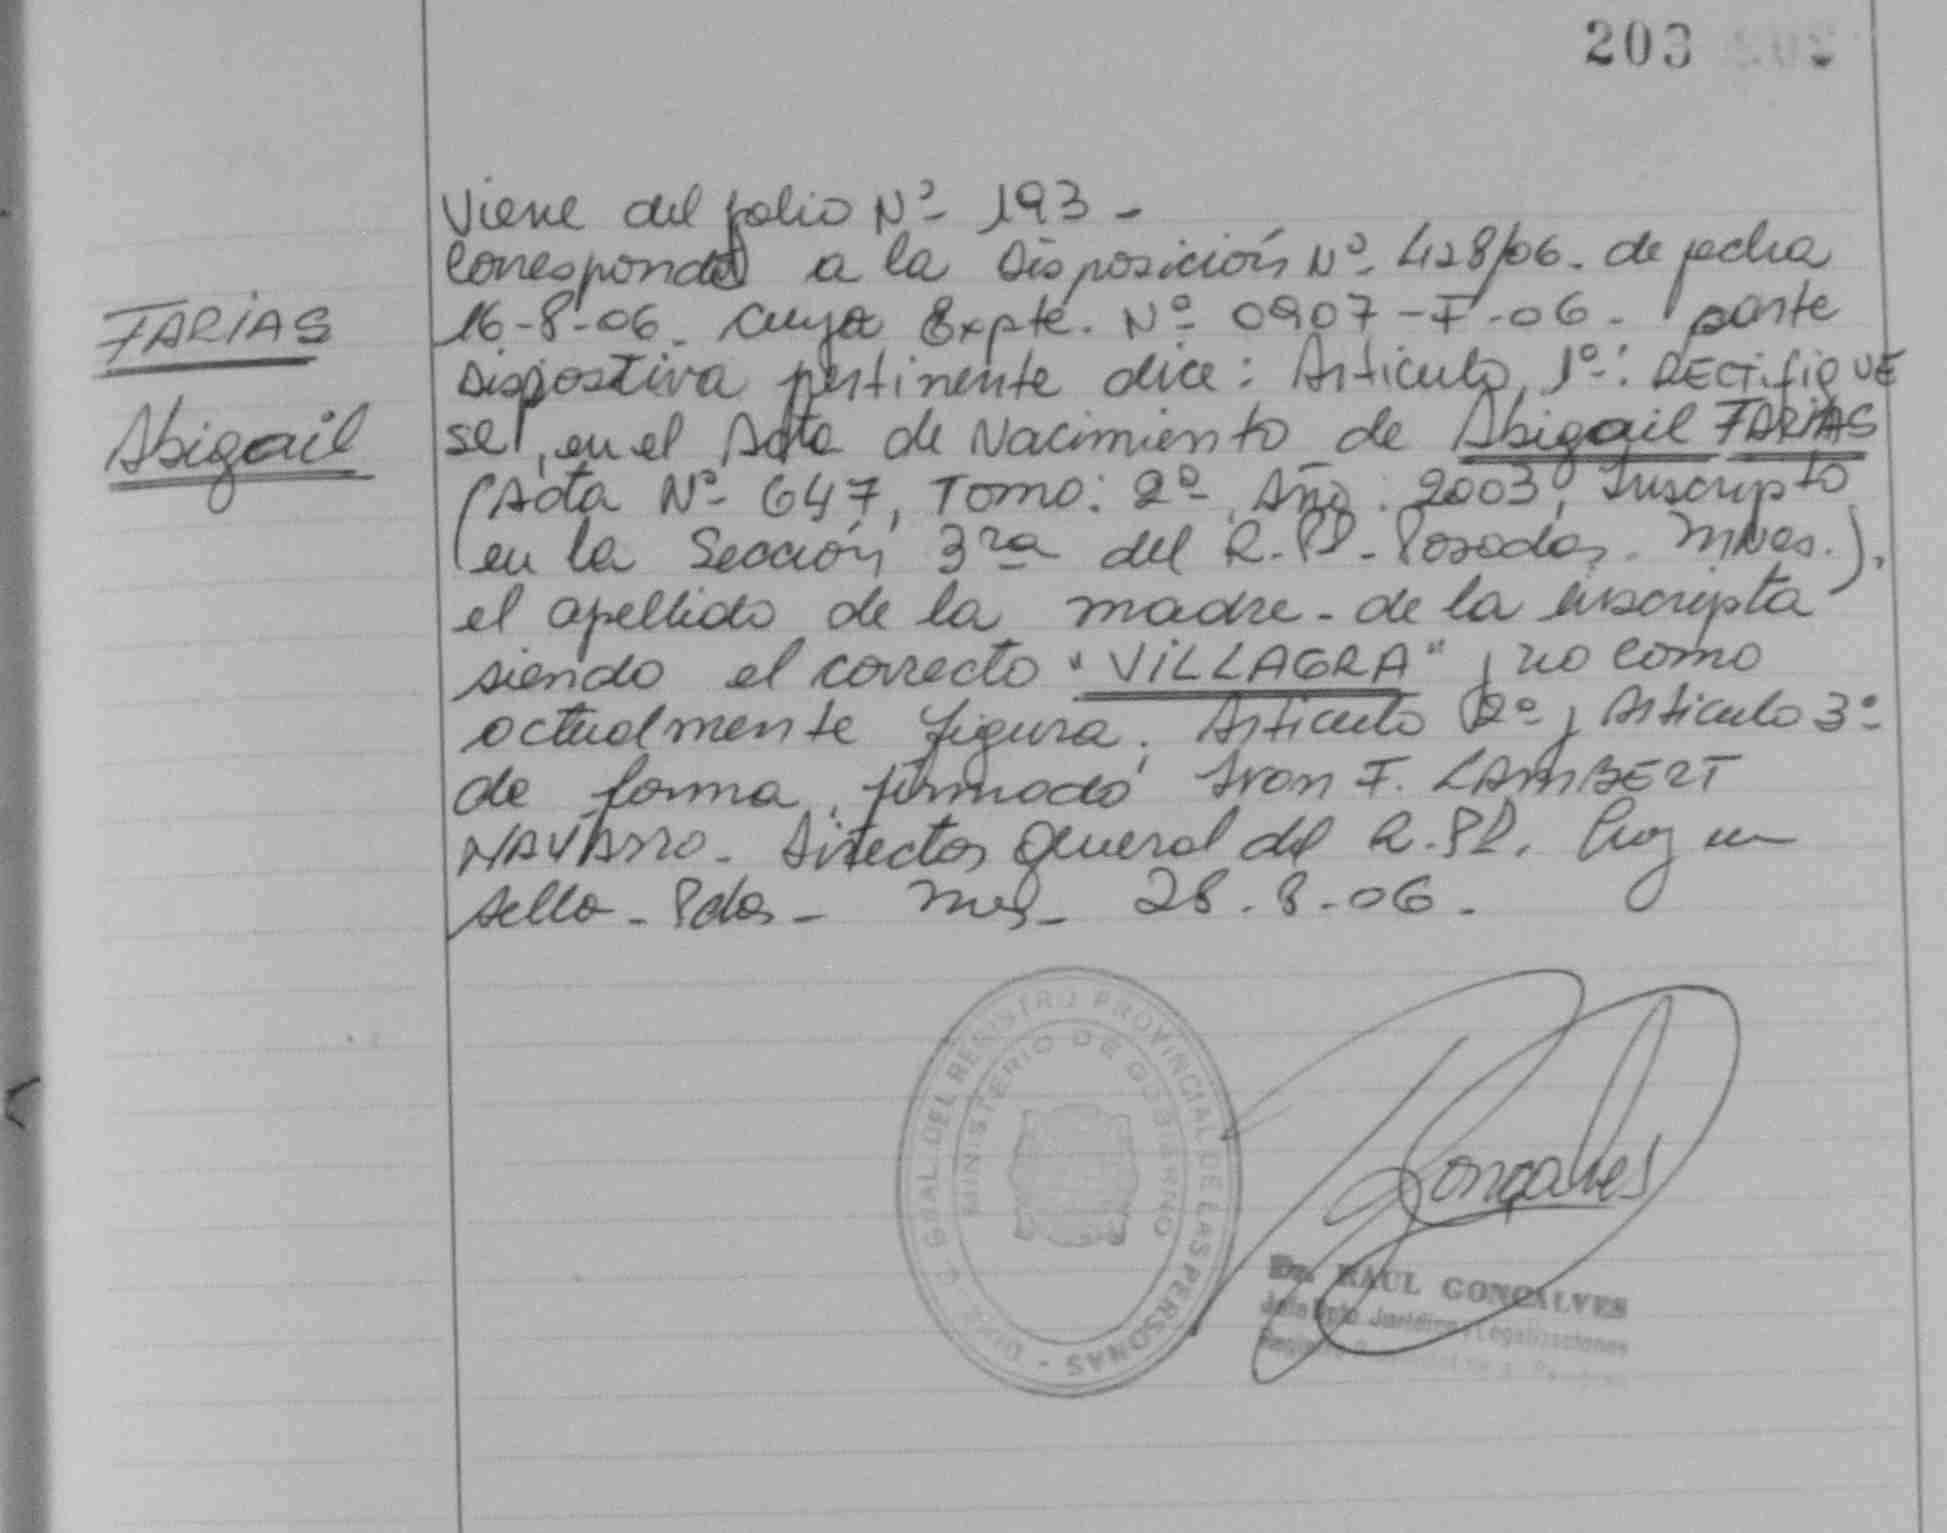 203
FARIAS
Abigail
Viene del folio Nº 193 -
Corresponde a la Disposición Nº 428/06. de fecha
16-8-06. cuya Expte. Nº 0907-F-06. parte
Dispostiva pertinente dice: Articulo 1º: RECTifiQUE
se, en el Acta de Nacimiento de Abigail FARIAS
(Acta Nº 647, Tomo: 2º, Año: 2003, Inscripto
en la Sección 3ra del R.P.P. Posadas. Mnes.),
el apellido de la madre de la inscripta
siendo el correcto "ViLLAGRA" y no como
actualmente figura. Articulo 2º y Articulo 3º
de forma, firmado Ivon F. LAMBERT
NAVARRO. Director General del R.P.P. Hay un
sello - Pdas - Mnes - 28.8.06.
DIRE. GRAL. DEL REGISTRO PROVINCIAL DE LAS PERSONAS -
MINISTERIO DE GOBIERNO
Gonçalves
Dr. RAUL GONCALVES
Jefe Dpto Jurídico y Legalizaciones